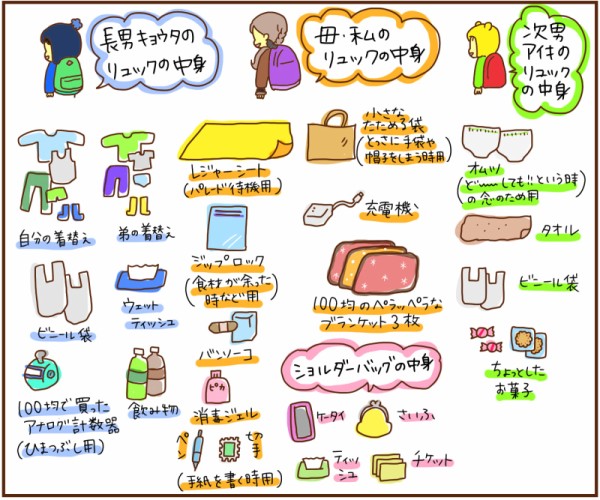 長男キョウタの
リュックの中身
母・私の
リュックの中身
次男
アイキの
リュック
の中身
自分の着替え
弟の着替え
ビニール袋
ウェット
ティッシュ
100均で買った
アナログ計数器
(ひまつぶし用)
飲み物
レジャーシート
(パレード待機用)
ジップロック
(食材が余った
時など用)
バンソーコ
ピカ
消毒ジェル
ペン
切手
(手紙を書く時用)
小さな
たためる袋
(とっさに手袋や
帽子をしまう時用)
充電機
100均のペラッペラな
ブランケット3枚
ショルダーバッグの中身
ケータイ
さいふ
ティッ
シュ
チケット
オムツ
(ど〜しても!!という時
の念のため用)
タオル
ビニール袋
ちょっとした
お菓子